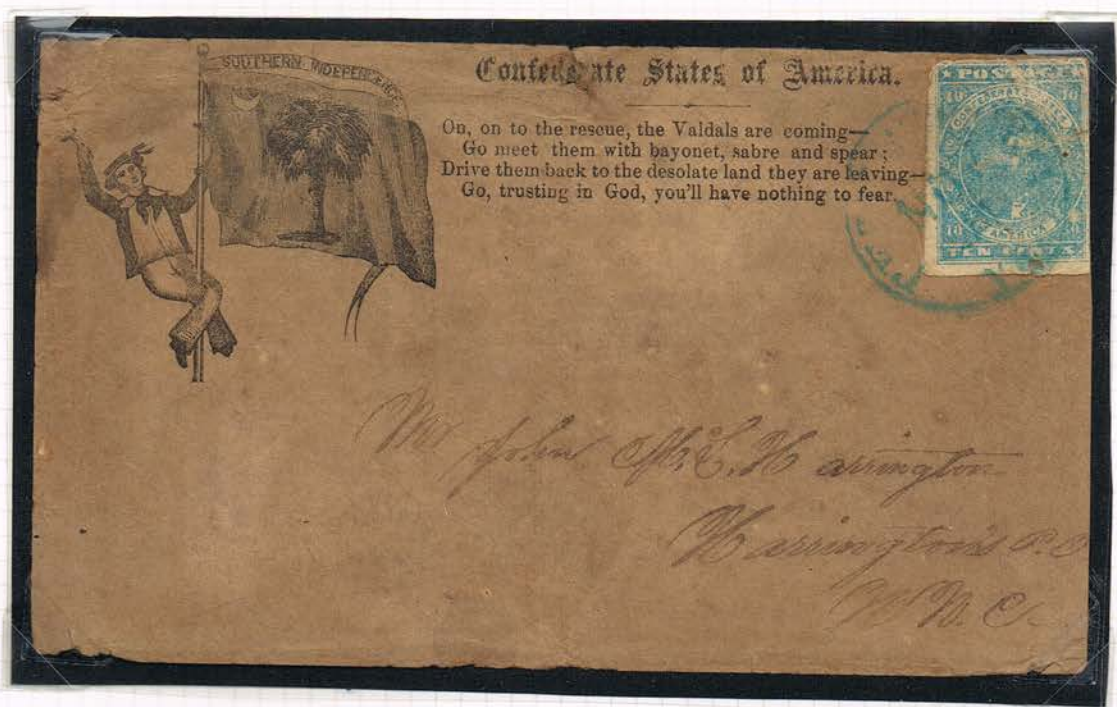 SOUTHERN INDEPENDENCE
Confederate States of America.
On, on to the rescue, the Valdals are coming—
Go meet them with bayonet, sabre and spear;
Drive them back to the desolate land they are leaving—
Go, trusting in God, you'll have nothing to fear.
POSTAGE
10 10
CONFEDERATE STATES
OF AMERICA
10 10
TEN CENTS
Mr John McC. Harrington
Harrington's P.O
N.C.